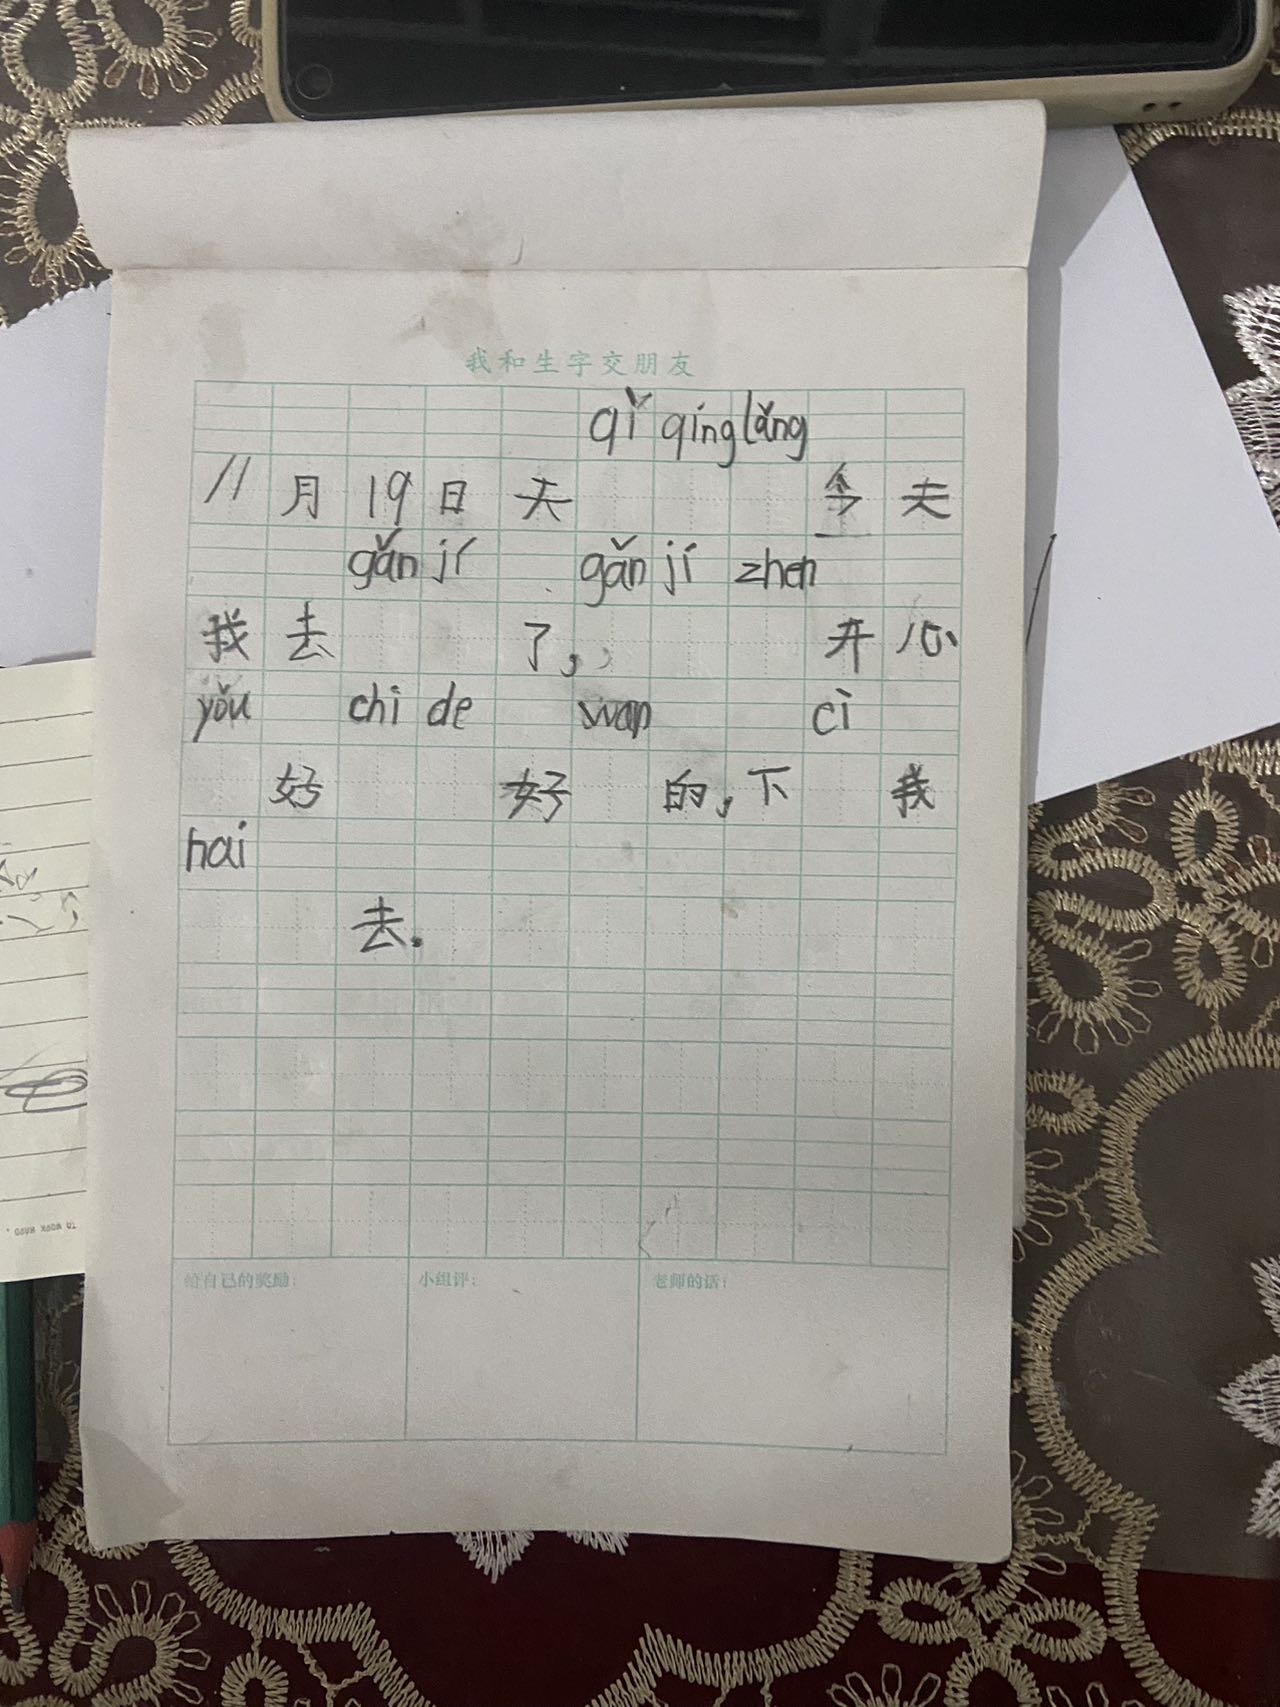 我和生字交朋友
qì qíng lǎng
11月19日天 今天
gǎn jí gǎn jí zhen
我去 了, 开心
yǒu chi de wan cì
好 好 的,下 我
hai
去.
给自己的奖励:
小组评:
老师的话:
TO WORK HARD.